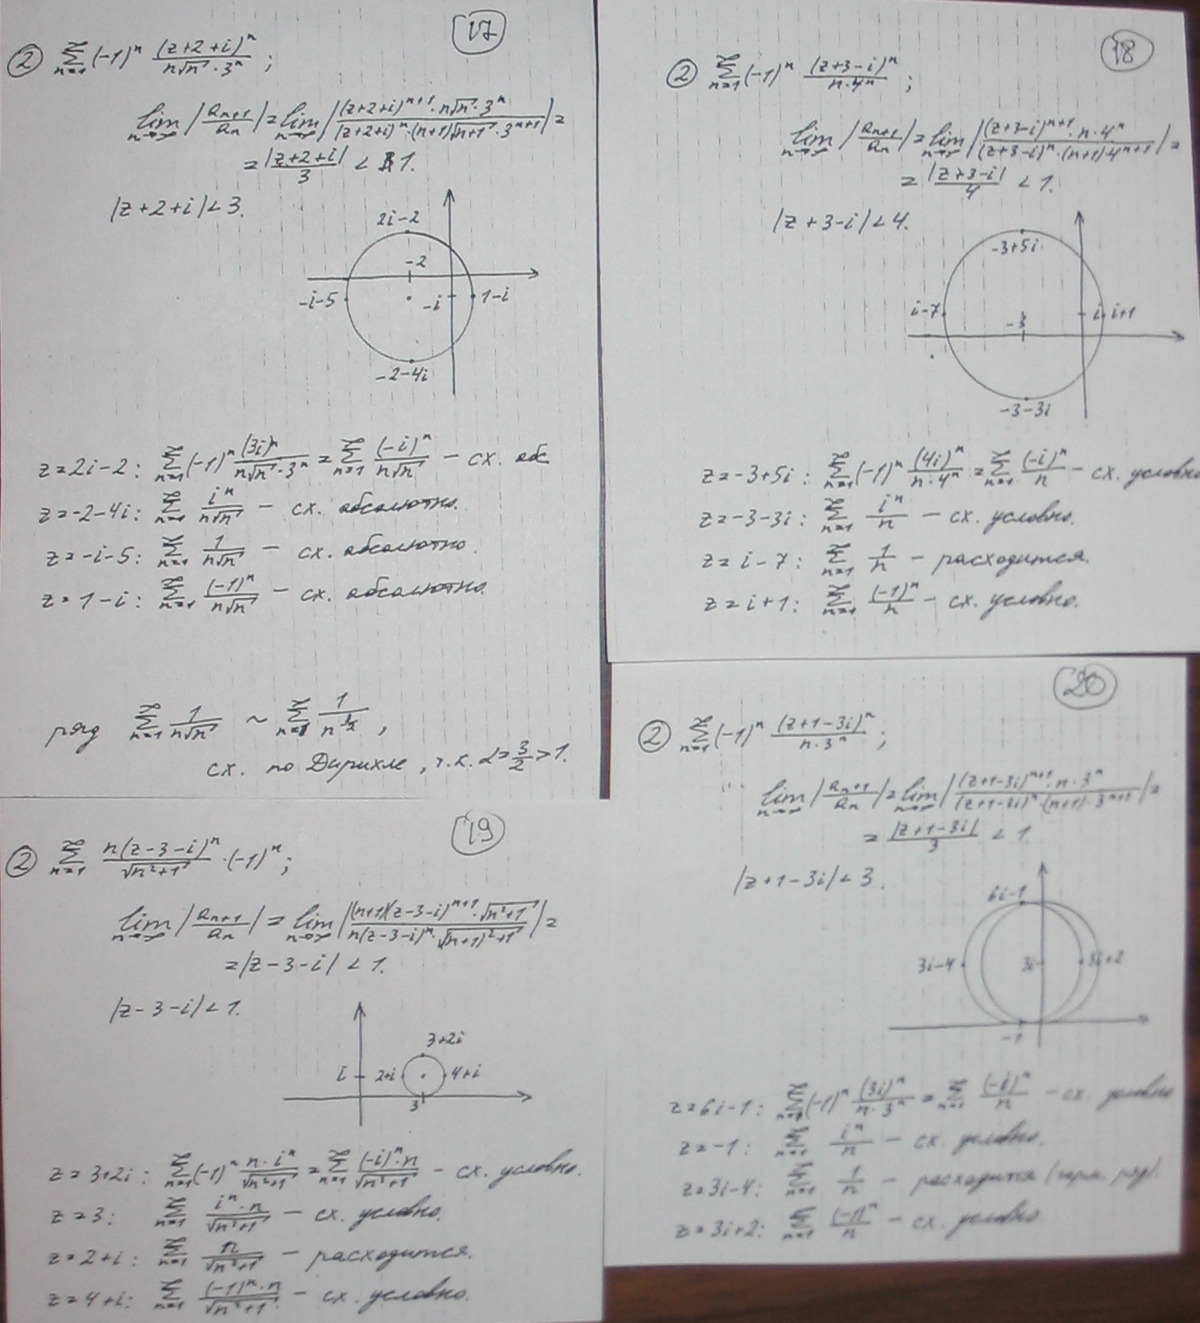 17
② ∑_{n=1}^∞ (-1)^n (z+2+i)^n / (n√n · 3^n) ;
lim_{n→∞} |a_{n+1}/a_n| = lim_{n→∞} |(z+2+i)^{n+1} · n√n · 3^n / ((z+2+i)^n · (n+1)√(n+1) · 3^{n+1})| =
= |z+2+i| / 3 < 1.
|z+2+i| < 3.
2i-2
-2
-i-5
-i
1-i
-2-4i
z=2i-2: ∑_{n=1}^∞ (-1)^n (3i)^n / (n√n · 3^n) = ∑_{n=1}^∞ (-i)^n / (n√n) – сх. абс
z=-2-4i: ∑_{n=1}^∞ i^n / (n√n) – сх. абсолютно.
z=-i-5: ∑_{n=1}^∞ 1 / (n√n) – сх. абсолютно.
z=1-i: ∑_{n=1}^∞ (-1)^n / (n√n) – сх. абсолютно.
ряд ∑_{n=1}^∞ 1 / (n√n) ~ ∑_{n=1}^∞ 1 / n^{3/2} ,
сх. по Дирихле, т.к. α=3/2>1.
18
② ∑_{n=1}^∞ (-1)^n (z+3-i)^n / (n·4^n) ;
lim_{n→∞} |a_{n+1}/a_n| = lim_{n→∞} |(z+3-i)^{n+1} · n · 4^n / ((z+3-i)^n · (n+1) · 4^{n+1})| =
= |z+3-i| / 4 < 1.
|z+3-i| < 4.
-3+5i
i-7
-3
i
i+1
-3-3i
z=-3+5i: ∑_{n=1}^∞ (-1)^n (4i)^n / (n·4^n) = ∑_{n=1}^∞ (-i)^n / n – сх. условно
z=-3-3i: ∑_{n=1}^∞ i^n / n – сх. условно.
z=i-7: ∑_{n=1}^∞ 1 / n – расходится.
z=i+1: ∑_{n=1}^∞ (-1)^n / n – сх. условно.
19
② ∑_{n=1}^∞ n(z-3-i)^n / √(n²+1) · (-1)^n ;
lim_{n→∞} |a_{n+1}/a_n| = lim_{n→∞} |(n+1)(z-3-i)^{n+1} · √(n²+1) / (n(z-3-i)^n · √((n+1)²+1))| =
= |z-3-i| < 1.
|z-3-i| < 1.
3+2i
i
2+i
4+i
3
z=3+2i: ∑_{n=1}^∞ (-1)^n n·i^n / √(n²+1) = ∑_{n=1}^∞ (-i)^n·n / √(n²+1) – сх. условно.
z=3: ∑_{n=1}^∞ i^n·n / √(n²+1) – сх. условно.
z=2+i: ∑_{n=1}^∞ n / √(n²+1) – расходится.
z=4+i: ∑_{n=1}^∞ (-1)^n·n / √(n²+1) – сх. условно.
20
② ∑_{n=1}^∞ (-1)^n (z+1-3i)^n / (n·3^n) ;
lim_{n→∞} |a_{n+1}/a_n| = lim_{n→∞} |(z+1-3i)^{n+1} · n · 3^n / ((z+1-3i)^n · (n+1) · 3^{n+1})| =
= |z+1-3i| / 3 < 1.
|z+1-3i| < 3.
6i-1
3i-4
3i
3i+2
-1
z=6i-1: ∑_{n=1}^∞ (-1)^n (3i)^n / (n·3^n) = ∑_{n=1}^∞ (-i)^n / n – сх. условно
z=-1: ∑_{n=1}^∞ i^n / n – сх. условно.
z=3i-4: ∑_{n=1}^∞ 1 / n – расходится (гарм. ряд).
z=3i+2: ∑_{n=1}^∞ (-1)^n / n – сх. условно.